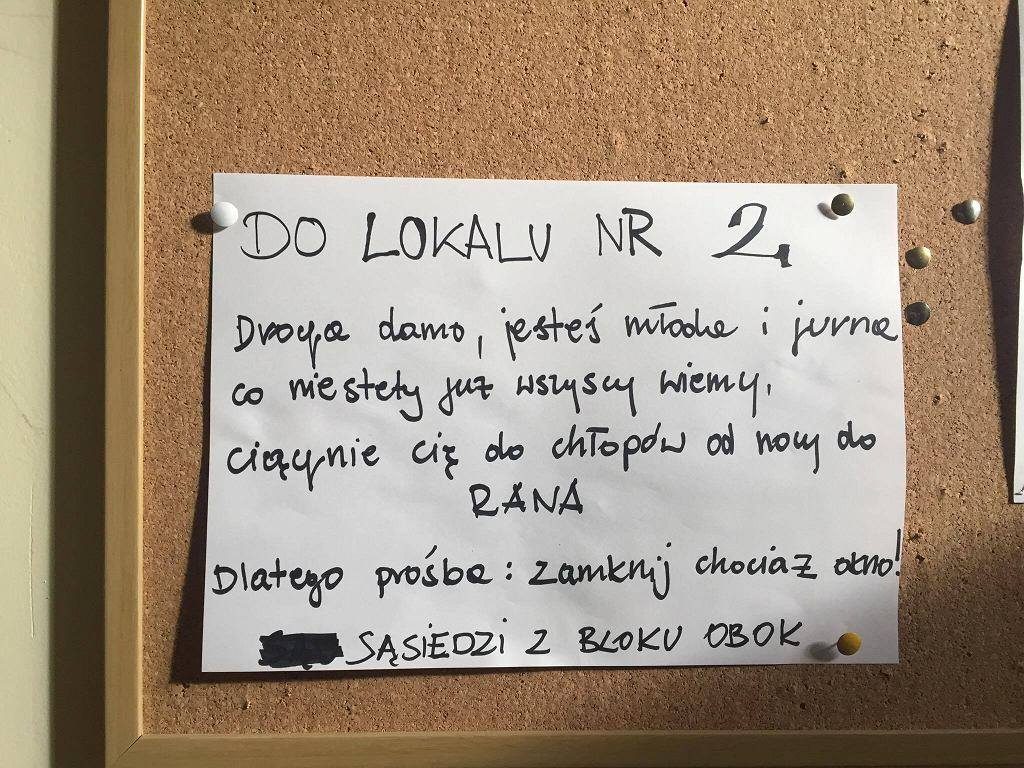 DO LOKALU NR 2
Droga damo, jesteś młoda i jurna
co niestety już wszyscy wiemy.
ciągnie cię do chłopów od nocy do
RANA
Dlatego prośba: zamknij chociaż okno!
SĄSIEDZI Z BLOKU OBOK